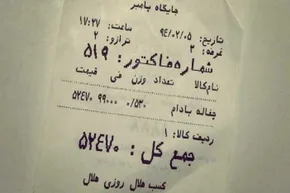 جایگاه پیامبر
تاریخ: ۹۴/۰۲/۰۵ ساعت: ۱۷:۲۷
غرفه: ۲ ترازو: ۲
شماره فاکتور: ۵۱۹
نام کالا تعداد وزن فی قیمت
چغاله بادام
۰/۵۳۰ ۹۹۰۰۰ ۵۲۴۷۰
ردیف کالا: ۱
جمع کل: ۵۲۴۷۰
کسب حلال روزی حلال